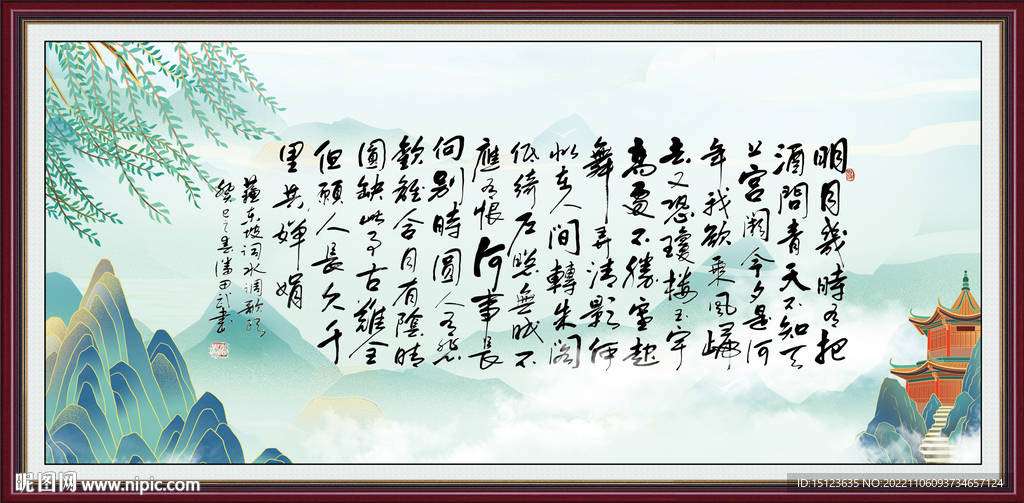 明月幾時有把
酒問青天不知天
上宮闕今夕是何
年我欲乘風歸
去又恐瓊樓玉宇
高處不勝寒起
舞弄清影何
似在人間轉朱閣
低綺户照無眠不
應有恨何事長
向别時圓人有悲
歡離合月有陰晴
圓缺此事古難全
但願人長久千
里共嬋娟
蘇東坡词水调歌頭
癸巳之夏潘田武書
昵图网 www.nipic.com
ID:15123635 NO:20221106093734657124